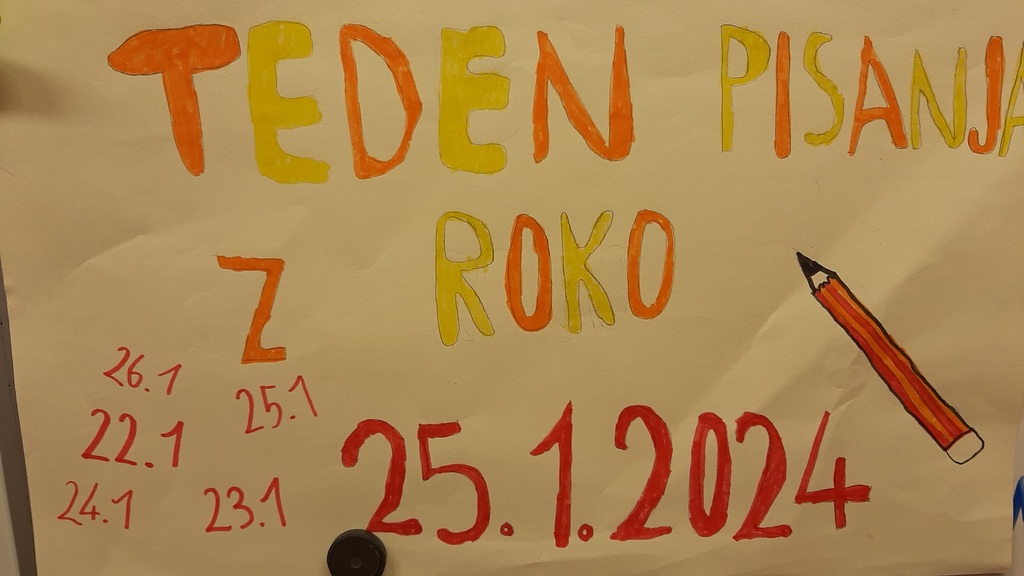 TEDEN PISANJA
Z ROKO
26.1
25.1
22.1
24.1
23.1
25.1.2024